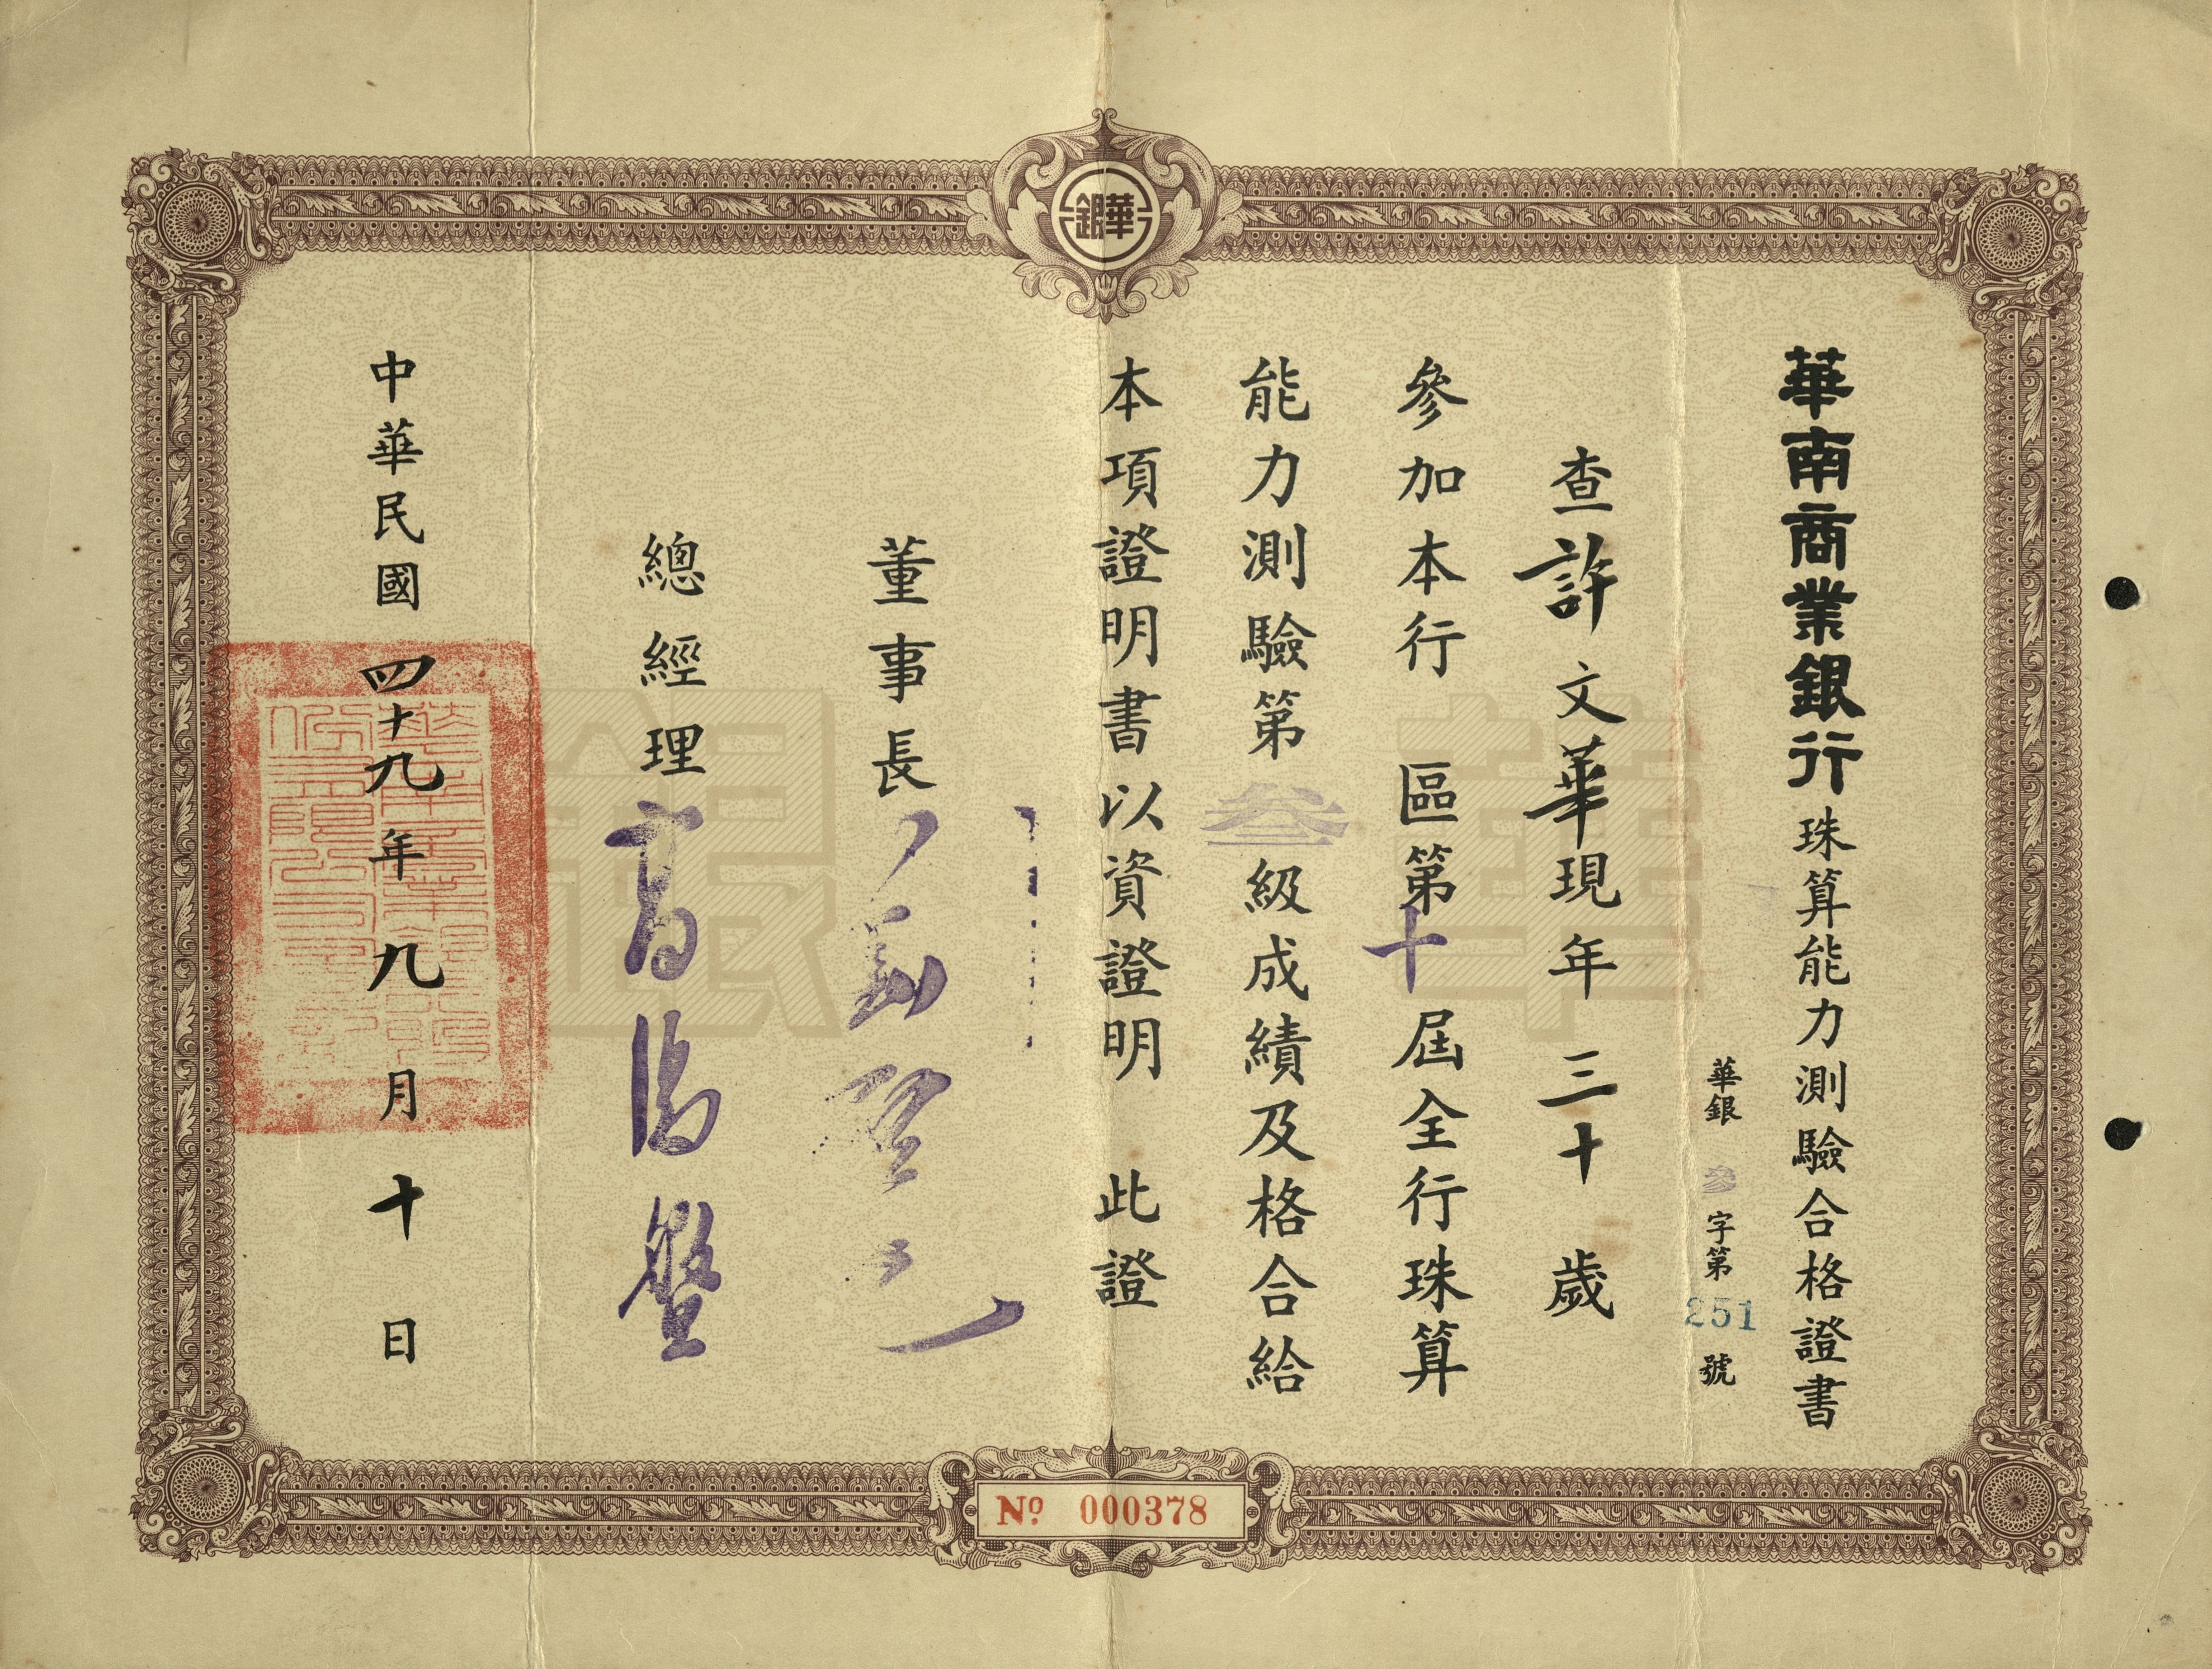 華南商業銀行珠算能力測驗合格證書
華銀 參 字第 251 號
查許文華現年三十歲
參加本行 區第十屆全行珠算
能力測驗第叁級成績及格合給
本項證明書以資證明 此證
董事長
總經理
中華民國四十九年九月十日
華銀
華銀
No 000378